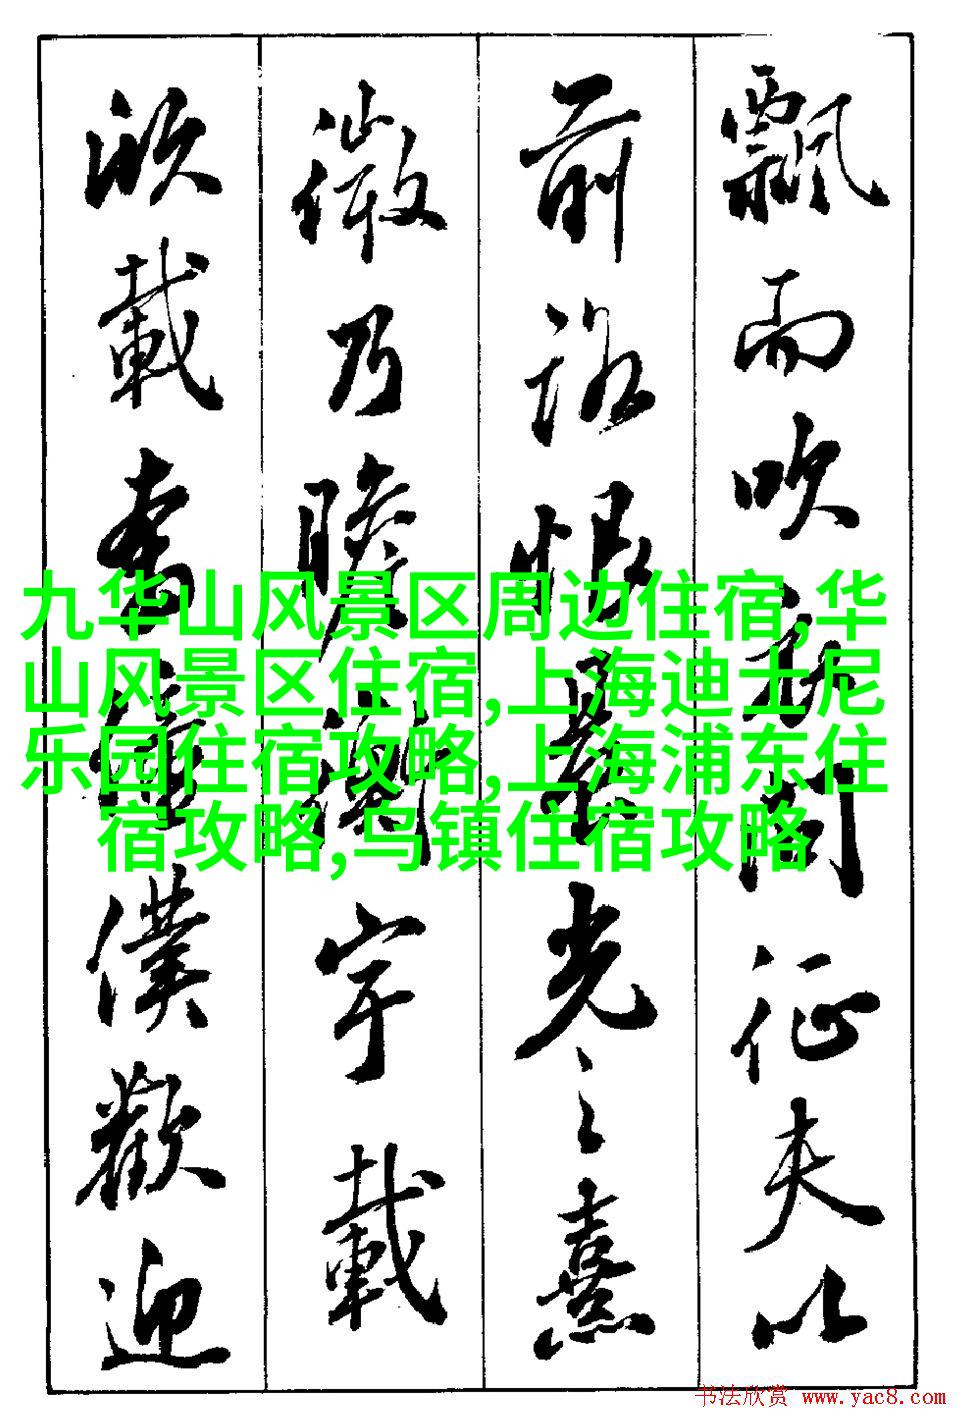 飄而吹衣問征夫以
前路恨晨光之熹
微乃瞻衡宇載
欣載奔僮僕歡迎
九华山风景区周边住宿,华
山风景区住宿,上海迪士尼
乐园住宿攻略,上海浦东住
宿攻略,乌镇住宿攻略
书法欣赏 www.yac8.com